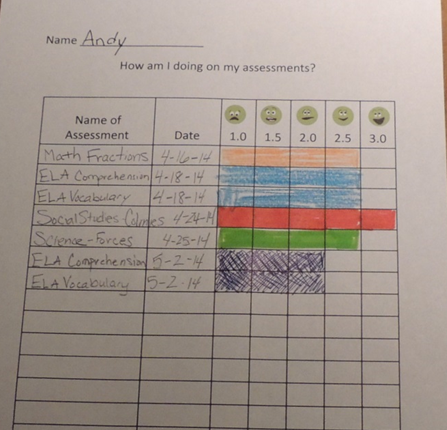 Name Andy
How am I doing on my assessments?
Name of
Assessment Date 1.0 1.5 2.0 2.5 3.0
Math Fractions 4-16-14
ELA Comprehension 4-18-14
ELA Vocabulary 4-18-14
Social Studies 4-24-14
Science-Forces 4-25-14
ELA Comprehension 5-2-14
ELA Vocabulary 5-2-14